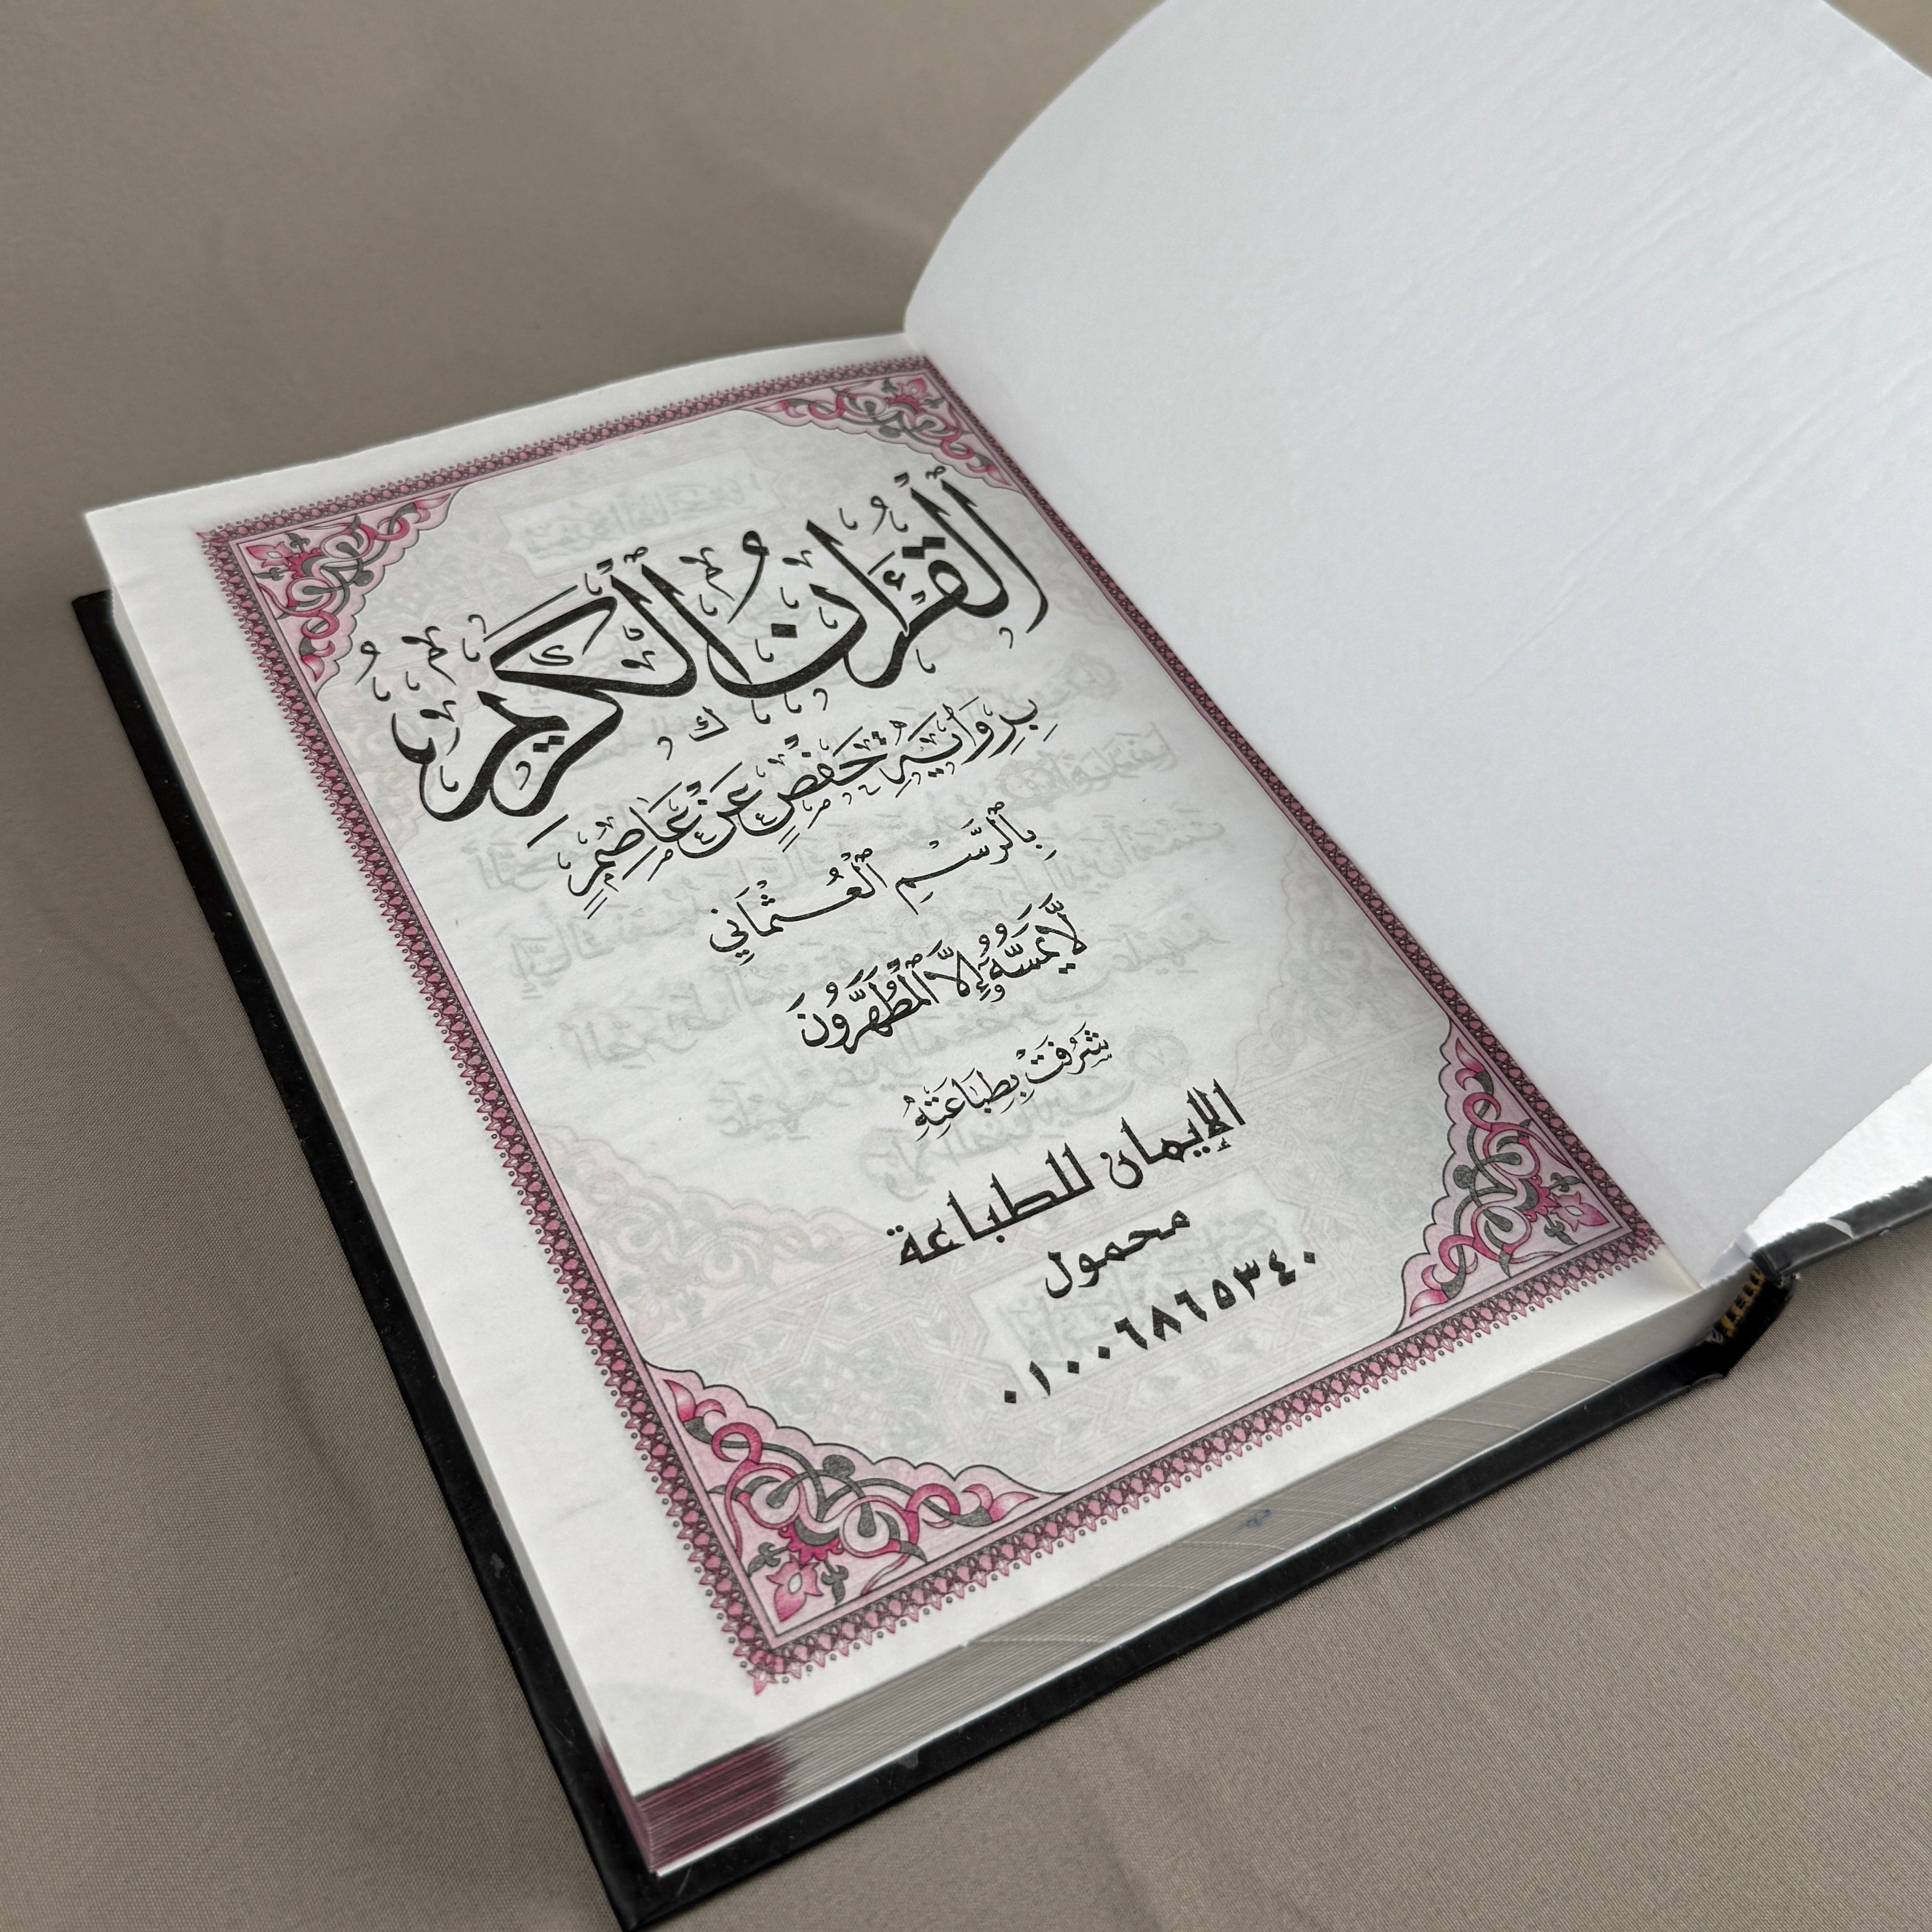 ٱلْقُرْءَانُ ٱلْكَرِيمُ
بِرِوَايَةِ حَفْصٍ عَنْ عَاصِمٍ
بِٱلرَّسْمِ ٱلْعُثْمَانِي
لَّا يَمَسُّهُۥٓ إِلَّا ٱلْمُطَهَّرُونَ
شَرُفَتْ بِطِبَاعَتِهِ
الإيمان للطباعة
محمول
٠١٠٠٦٨٦٥٣٤٠